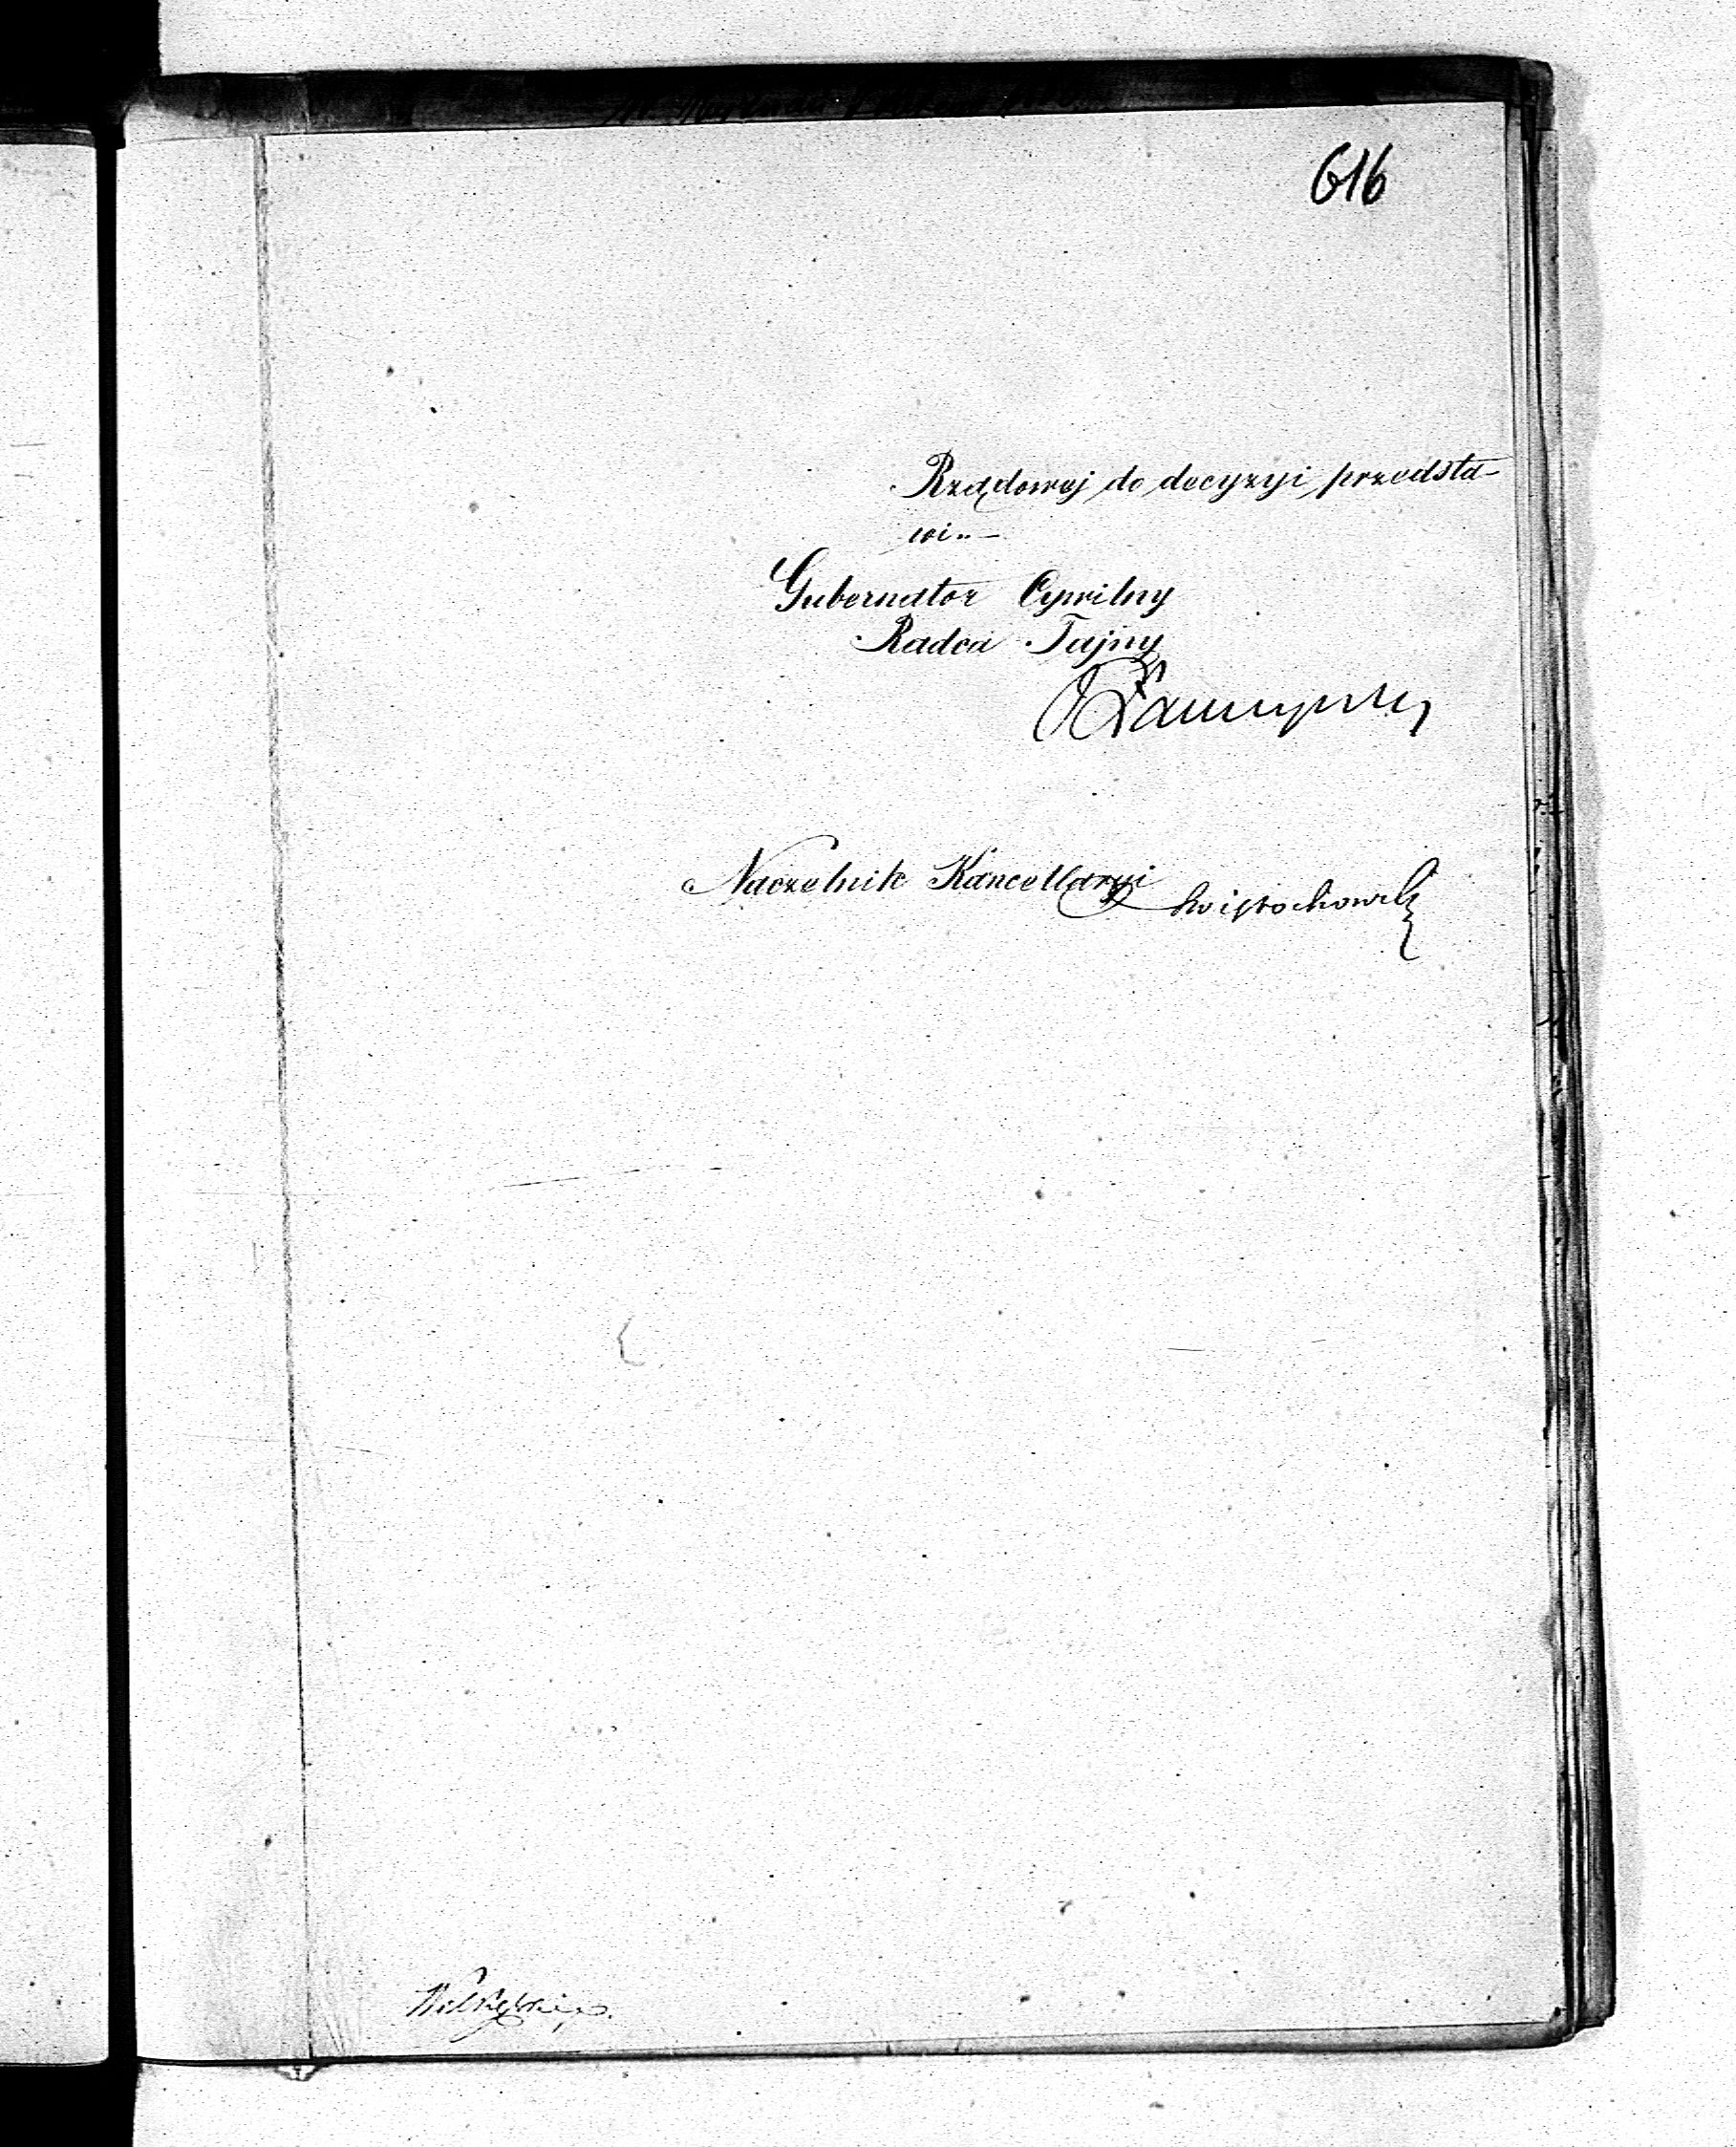 616
Rządowej do decyzyi przedsta-
wi.. —
Gubernator Cywilny
Radca Tajny
Naczelnik Kancellaryi